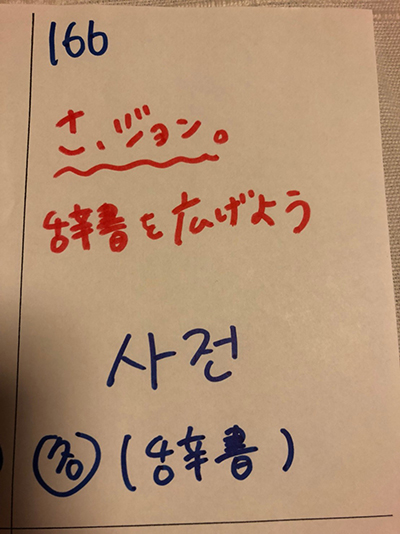 166
さ、ジョン。
辞書を広げよう
사전
名(辞書)